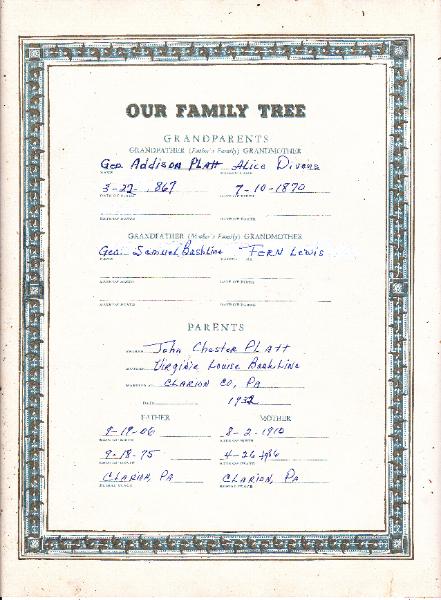 OUR FAMILY TREE
GRANDPARENTS
GRANDFATHER (Father's Family) GRANDMOTHER
Geo. Addison Platt Alice Divens
NAME
3-22-1867 7-10-1870
DATE OF BIRTH DATE OF BIRTH
DATE OF DEATH DATE OF DEATH
GRANDFATHER (Mother's Family) GRANDMOTHER
Geo. Samuel Bashline FERN Lewis
NAME
DATE OF BIRTH DATE OF BIRTH
DATE OF DEATH DATE OF DEATH
PARENTS
John Chester PLATT
Virginia Louise Bashline
MARRIED AT CLARION CO, PA
DATE 1932
FATHER MOTHER
9-19-06 8-2-1910
DATE OF BIRTH DATE OF BIRTH
9-18-75 4-26-1986
DATE OF DEATH DATE OF DEATH
CLARION, PA CLARION, PA
BURIAL PLACE BURIAL PLACE